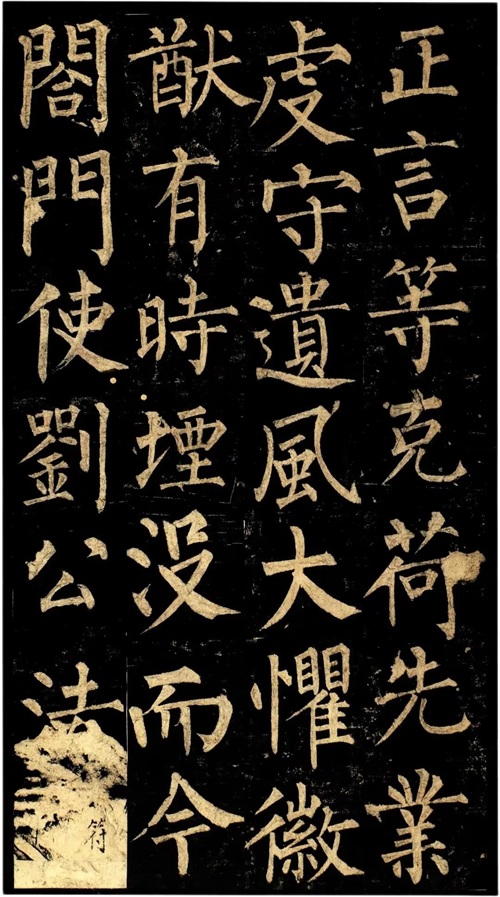 正言等克荷先業
虔守遺風大懼徽
猷有時堙沒而今
閤門使劉公法
符